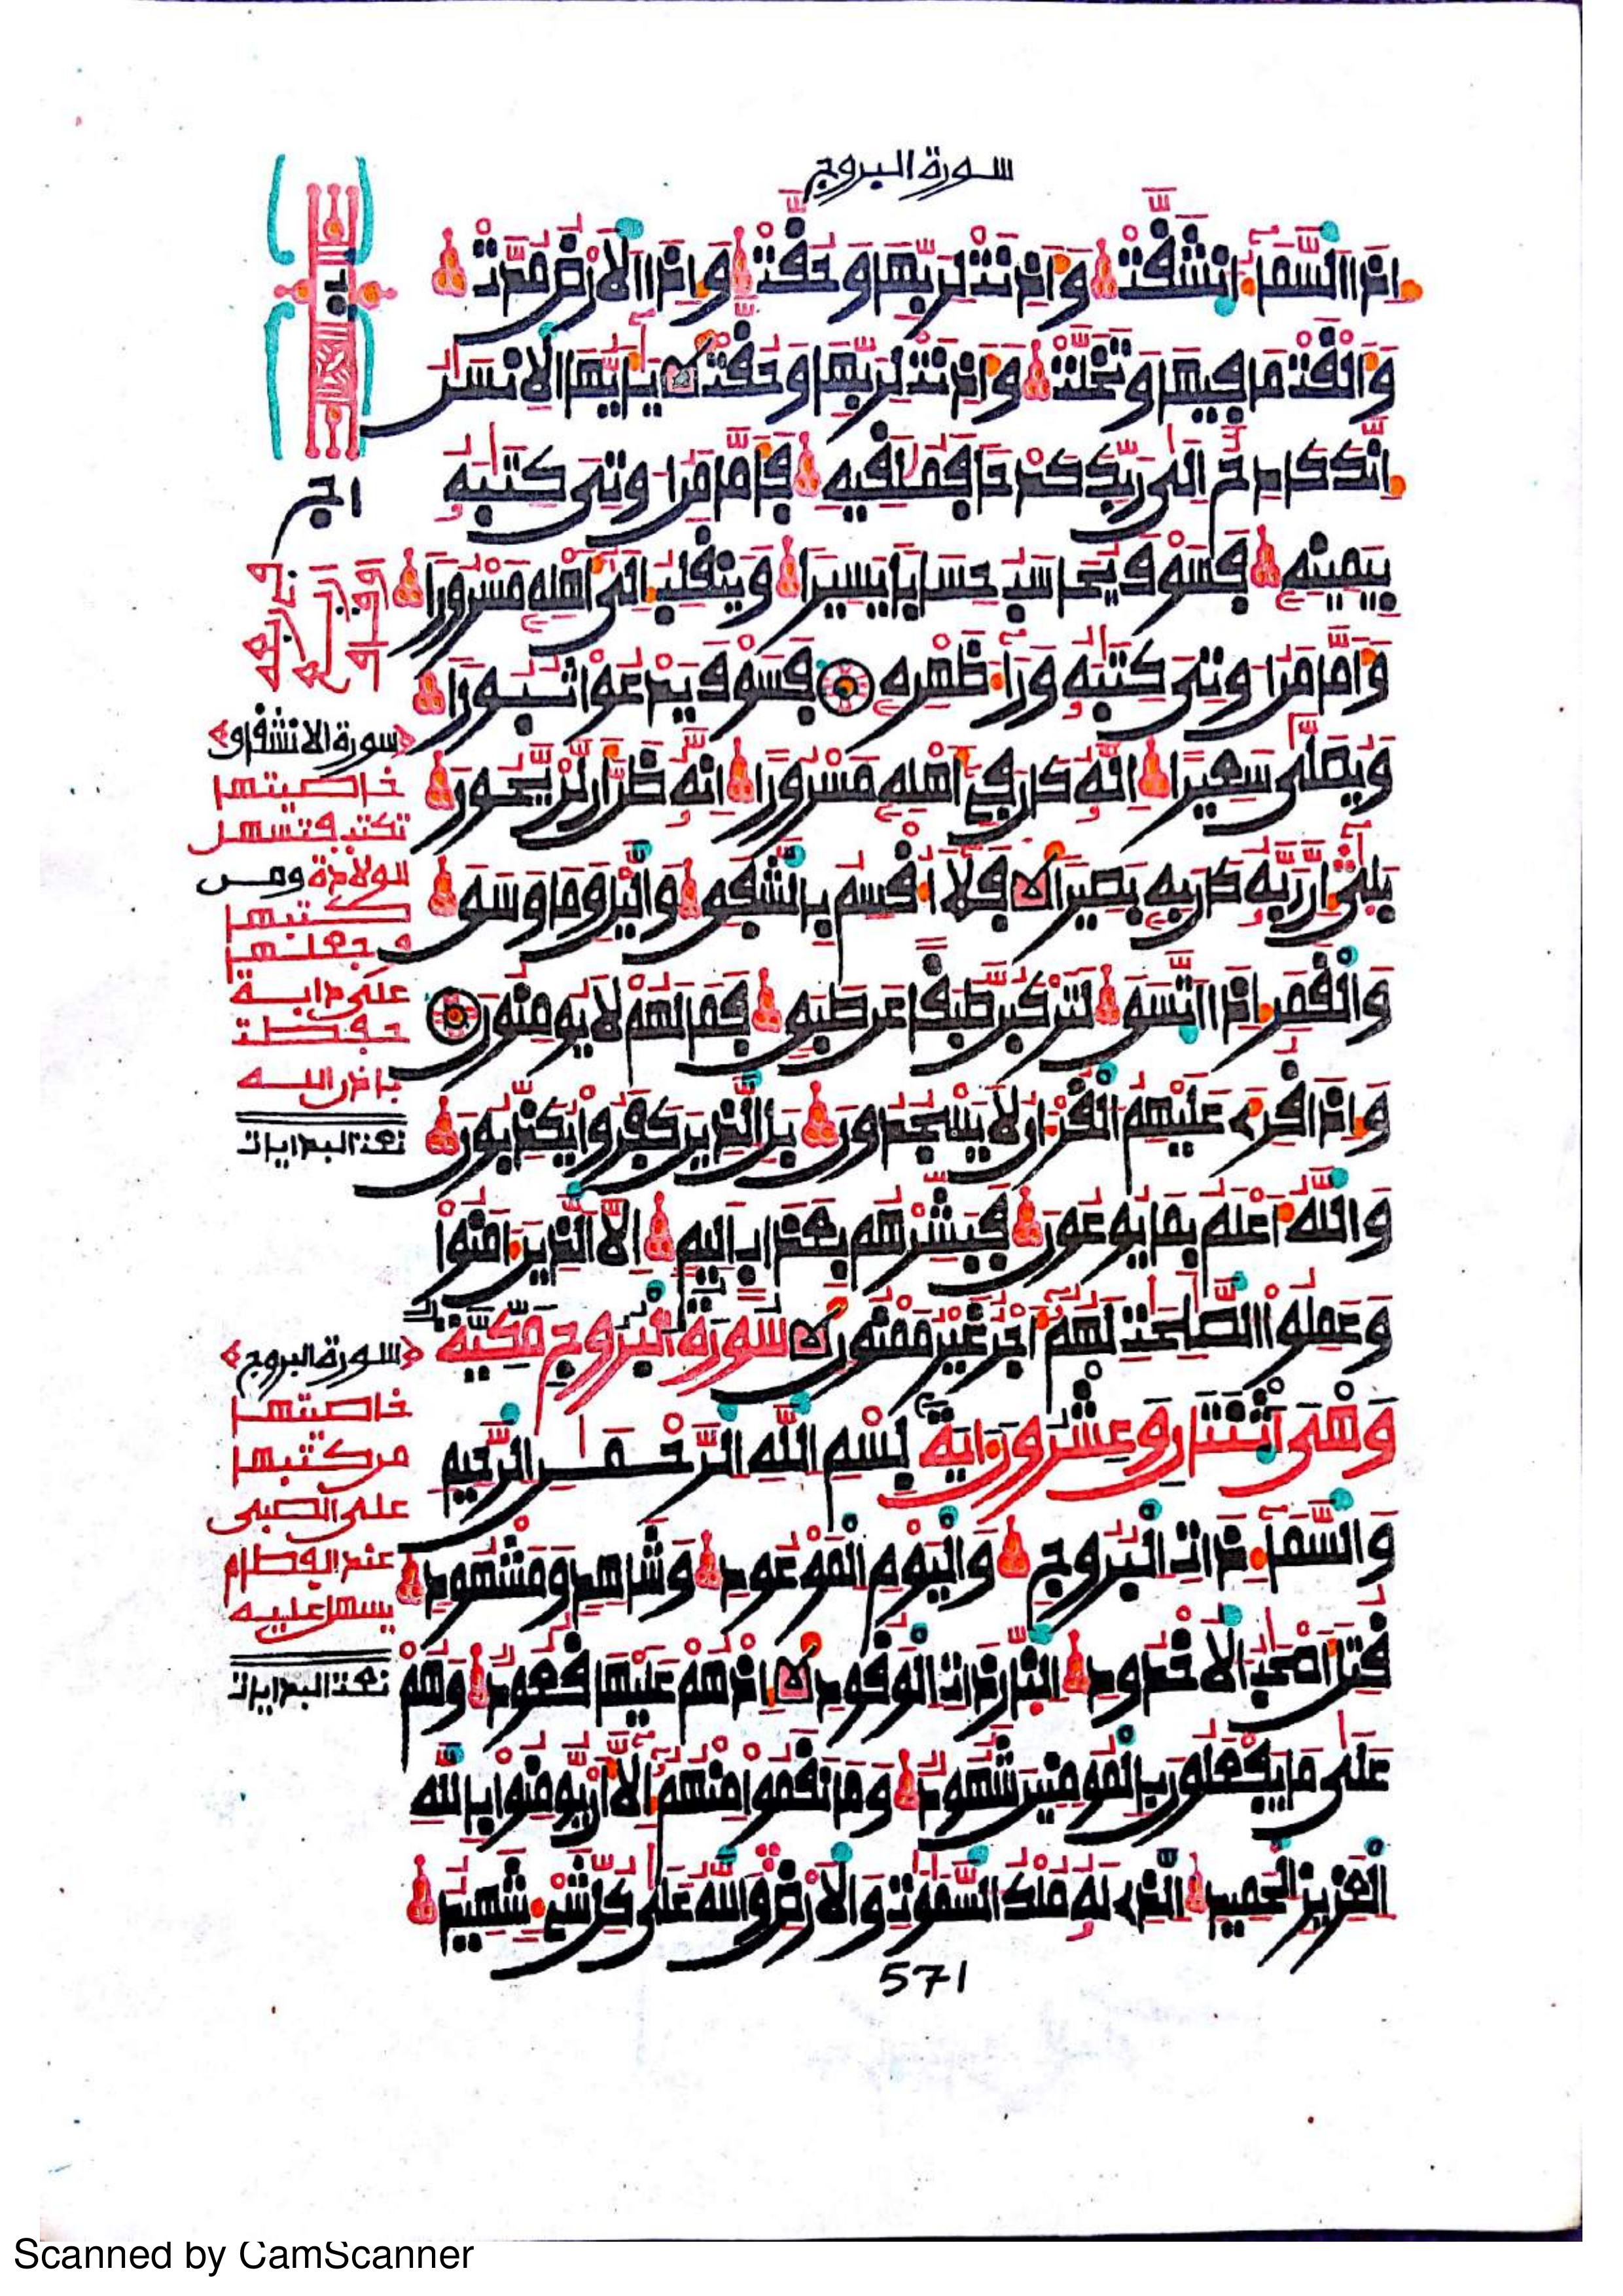 سورة البروج
إِذَا السَّمَآءُ انشَقَّتْ وَأَذِنَتْ لِرَبِّهَا وَحُقَّتْ وَإِذَا الْأَرْضُ مُدَّتْ
وَأَلْقَتْ مَا فِيهَا وَتَخَلَّتْ وَأَذِنَتْ لِرَبِّهَا وَحُقَّتْ يَٰٓأَيُّهَا الْإِنسَٰنُ
إِنَّكَ كَادِحٌ إِلَىٰ رَبِّكَ كَدْحًا فَمُلَٰقِيهِ فَأَمَّا مَنُ اوتِيَ كِتَٰبَهُ
بِيَمِينِهِ فَسَوْفَ يُحَاسَبُ حِسَابًا يَسِيرًا وَيَنقَلِبُ إِلَىٰ أَهْلِهِ مَسْرُورًا
وَأَمَّا مَنُ اوتِيَ كِتَٰبَهُ وَرَآءَ ظَهْرِهِ فَسَوْفَ يَدْعُوا ثُبُورًا
وَيُصَلَّىٰ سَعِيرًا إِنَّهُ كَانَ فِي أَهْلِهِ مَسْرُورًا إِنَّهُ ظَنَّ أَن لَّن يَحُورَ
بَلَىٰ إِنَّ رَبَّهُ كَانَ بِهِ بَصِيرًا فَلَا أُقْسِمُ بِالشَّفَقِ وَالَّيْلِ وَمَا وَسَقَ
وَالْقَمَرِ إِذَا اتَّسَقَ لَتَرْكَبُنَّ طَبَقًا عَن طَبَقٍ فَمَا لَهُمْ لَا يُومِنُونَ
وَإِذَا قُرِئَ عَلَيْهِمُ الْقُرْءَانُ لَا يَسْجُدُونَ بَلِ الَّذِينَ كَفَرُوا يُكَذِّبُونَ
وَاللَّهُ أَعْلَمُ بِمَا يُوعُونَ فَبَشِّرْهُم بِعَذَابٍ أَلِيمٍ إِلَّا الَّذِينَ ءَامَنُوا
وَعَمِلُوا الصَّٰلِحَٰتِ لَهُمُ أَجْرٌ غَيْرُ مَمْنُونٍ سُورَةُ الْبُرُوجِ مَكِّيَّةٌ
وَهْيَ اثْنَتَانِ وَعِشْرُونَ ءَايَةً بِسْمِ اللَّهِ الرَّحْمَٰنِ الرَّحِيمِ
وَالسَّمَآءِ ذَاتِ الْبُرُوجِ وَالْيَوْمِ الْمَوْعُودِ وَشَاهِدٍ وَمَشْهُودٍ
قُتِلَ أَصْحَٰبُ الْأُخْدُودِ النَّارِ ذَاتِ الْوَقُودِ إِذْ هُمْ عَلَيْهَا قُعُودٌ وَهُمْ
عَلَىٰ مَا يَفْعَلُونَ بِالْمُومِنِينَ شُهُودٌ وَمَا نَقَمُوا مِنْهُمُ إِلَّا أَن يُّومِنُوا بِاللَّهِ
الْعَزِيزِ الْحَمِيدِ الَّذِي لَهُ مُلْكُ السَّمَٰوَٰتِ وَالْأَرْضِ وَاللَّهُ عَلَىٰ كُلِّ شَيْءٍ شَهِيدٌ
571
سورة الانشقاق
خاصيتها
تكتب فتسهل
الولادة ومن
كتبها
وجعلها
على دابة
حفظت
باذن الله
نعت البدايات
سورة البروج
خاصيتها
من كتبها
على الصبي
عند الفطام
يسهل عليه
نعت البدايات
Scanned by CamScanner